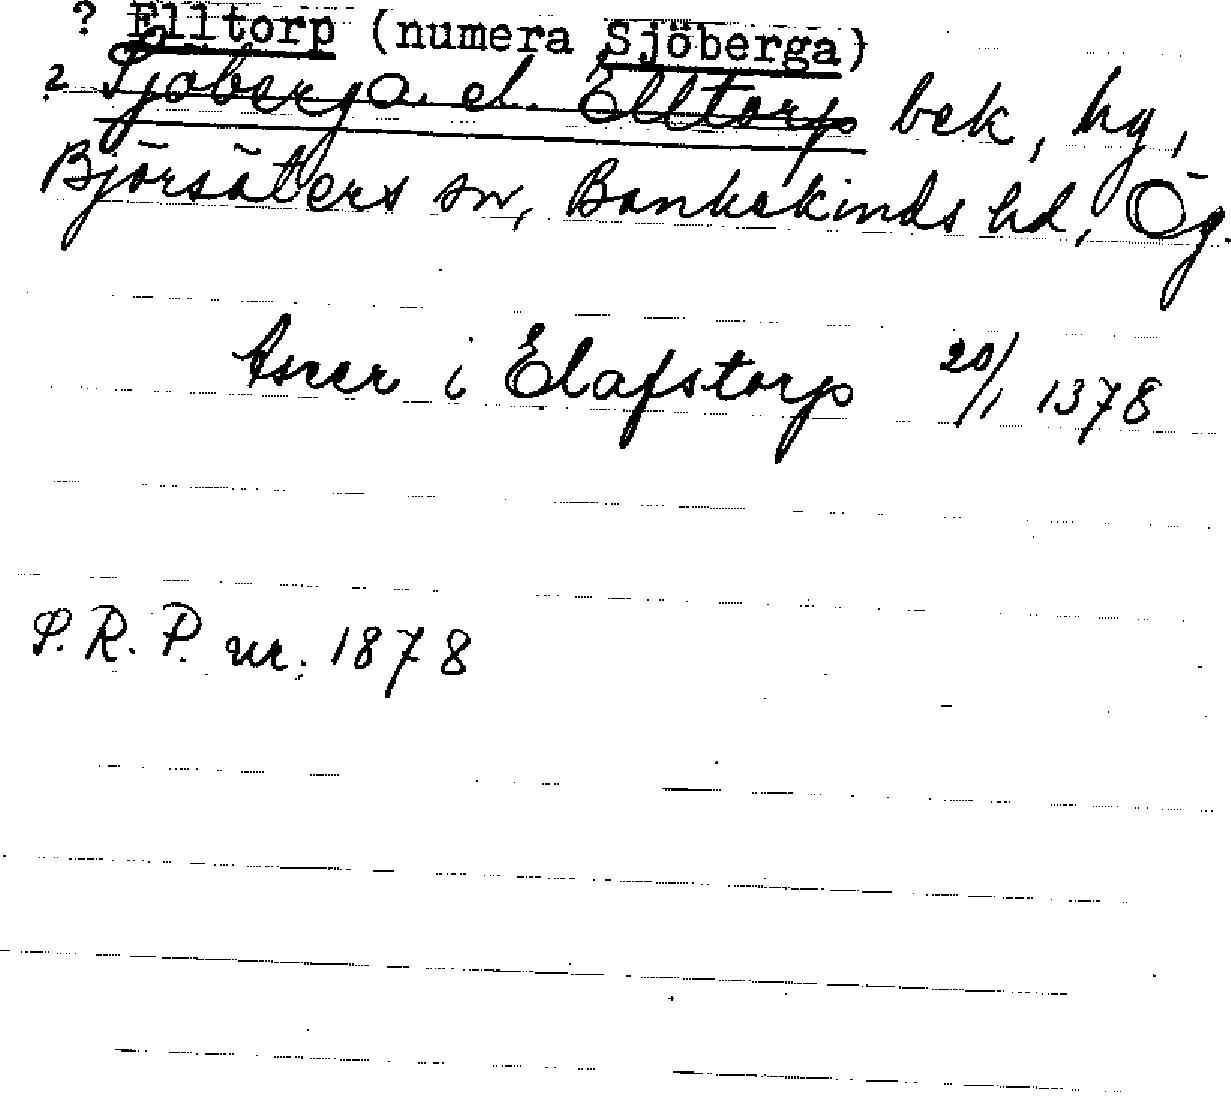 ? Elltorp (numera Sjöberga)
? Sjöberga el. Elltorp bek, by,
Björsäters sn, Bankekinds hd, Ög.
Asser i Elafstorp 20/1 1378
S.R.P. nr. 1878